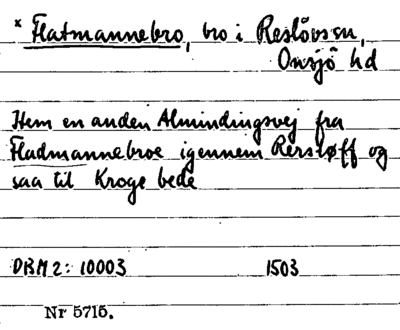 × Flatmannebro, bro i Reslövs sn,
Onsjö hd
Hem en anden Almindingsvej fra
Fladmannebroe igennem Rersløff og
saa til Kroge bede
DBM 2: 10003 1503
Nr 5715.